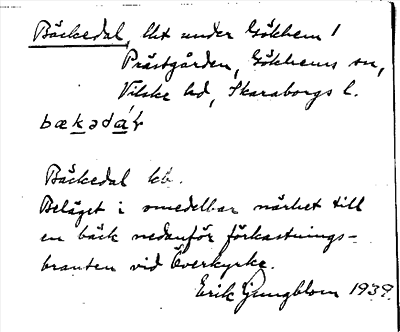 Bäckedal, lht under Gökhem 1
Prästgården, Gökhems sn,
Vilske hd, Skaraborgs l.
bækəda
Bäckedal kb.
Beläget i omedelbar närhet till
en bäck nedanför förkastnings-
branten vid Överkyrke.
Erik Ljungblom 1939.